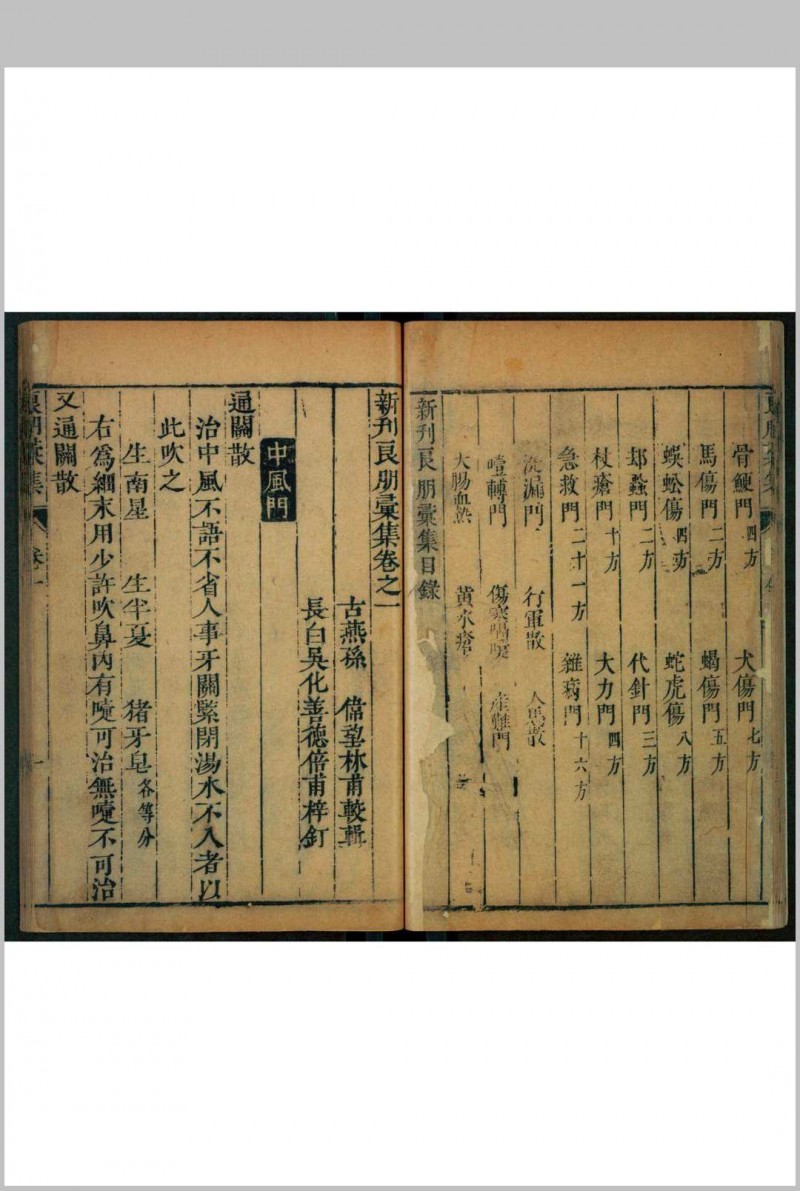 骨鯁門四方 犬傷門七方
馬傷門二方 蝎傷門五方
蜈蚣傷四方 蛇虎傷八方
𨚫蠚門二方 代針門三方
杖瘡門十方 大力門四方
急救門二十一方 雜病門十六方
漏門 行軍散 人馬散
噎轉門 傷寒 産難門
大腸血熱 黄水瘡
新刋良朋彙集目錄
新刋良朋彙集卷之一
古燕孫 偉望林甫較輯
長白吳化善德倍甫梓釘
中風門
通關散
治中風不語不省人事牙關緊閉湯水不入者以
此吹之
生南星 生半夏 猪牙皂各等分
右爲細末用少許吹鼻內有嚏可治無嚏不可治
又通關散
良朋彙集 卷一 一